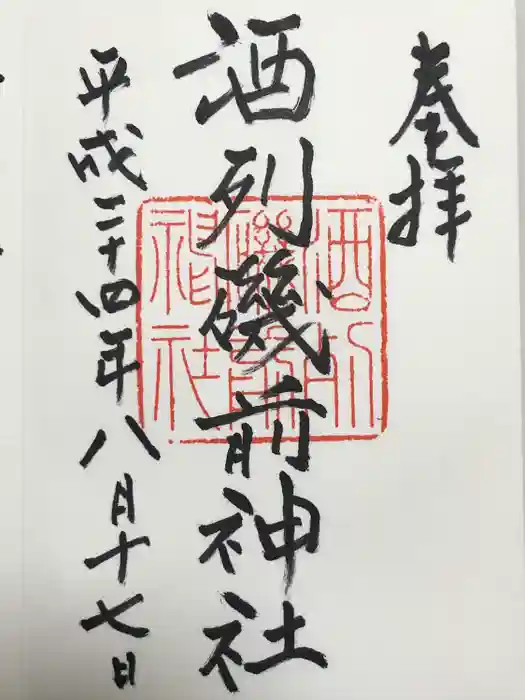 奉拝
酒列磯前神社
平成二十四年八月十七日
酒列磯前神社